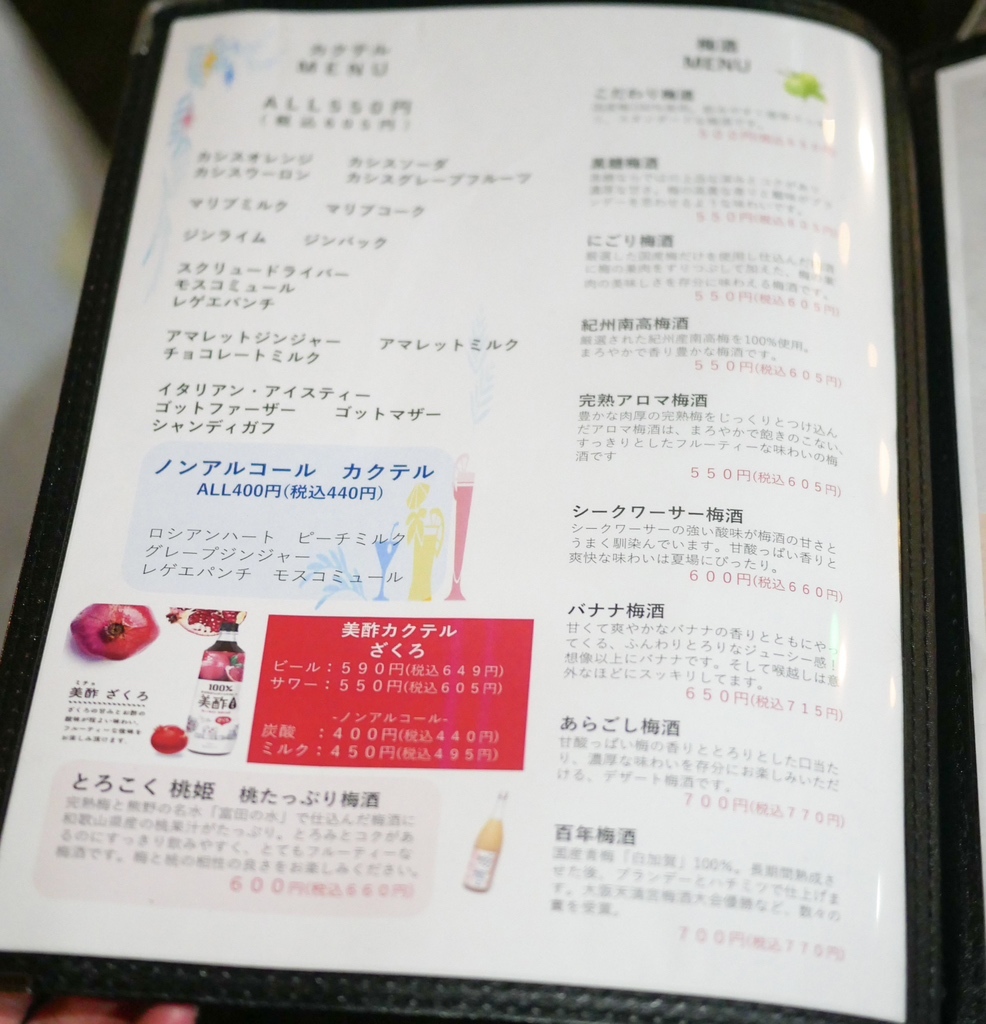 カクテル
MENU
ALL550円
(税込605円)
カシスオレンジ カシスソーダ
カシスウーロン カシスグレープフルーツ
マリブミルク マリブコーク
ジンライム ジンバック
スクリュードライバー
モスコミュール
レゲエパンチ
アマレットジンジャー アマレットミルク
チョコレートミルク
イタリアン・アイスティー
ゴットファーザー ゴットマザー
シャンディガフ
ノンアルコール カクテル
ALL400円(税込440円)
ロシアンハート ピーチミルク
グレープジンジャー
レゲエパンチ モスコミュール
ミチョ
美酢 ざくろ
ざくろの甘みとお酢の
酸味が程よい味わい。
フルーティーな後味を
お楽しみ頂けます。
100%
美酢
美酢カクテル
ざくろ
ビール:590円(税込649円)
サワー:550円(税込605円)
-ノンアルコール-
炭酸 :400円(税込440円)
ミルク:450円(税込495円)
とろこく 桃姫 桃たっぷり梅酒
完熟梅と熊野の名水「富田の水」で仕込んだ梅酒に
和歌山県産の桃果汁がたっぷり。とろみとコクがあ
るのにすっきり飲みやすく、とてもフルーティーな
梅酒です。梅と桃の相性の良さをお楽しみください。
600円(税込660円)
梅酒
MENU
こだわり梅酒
黒糖梅酒
550円(税込605円)
にごり梅酒
厳選した国産梅だけを使用し仕込んだ梅酒
に梅の果肉をすりつぶして加えた、梅の果
肉の美味しさを存分に味わえる梅酒です。
550円(税込605円)
紀州南高梅酒
厳選された紀州産南高梅を100%使用。
まろやかで香り豊かな梅酒です。
550円(税込605円)
完熟アロマ梅酒
豊かな肉厚の完熟梅をじっくりとつけ込ん
だアロマ梅酒は、まろやかで飽きのこない、
すっきりとしたフルーティーな味わいの梅
酒です
550円(税込605円)
シークワーサー梅酒
シークワーサーの強い酸味が梅酒の甘さと
うまく馴染んでいます。甘酸っぱい香りと
爽快な味わいは夏場にぴったり。
600円(税込660円)
バナナ梅酒
甘くて爽やかなバナナの香りとともにやっ
てくる、ふんわりとろりなジューシー感!
想像以上にバナナです。そして喉越しは意
外なほどにスッキリしてます。
650円(税込715円)
あらごし梅酒
甘酸っぱい梅の香りととろりとした口当た
り、濃厚な味わいを存分にお楽しみいただ
ける、デザート梅酒です。
700円(税込770円)
百年梅酒
国産青梅「白加賀」100%。長期間熟成さ
せた後、ブランデーとハチミツで仕上げま
す。大阪天満宮梅酒大会優勝など、数々の
賞を受賞。
700円(税込770円)